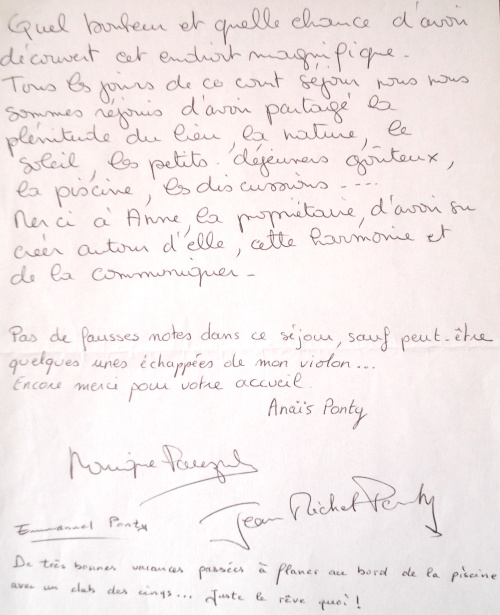 Quel bonheur et quelle chance d'avoir
découvert cet endroit magnifique.
Tous les jours de ce court séjour nous nous
sommes réjouis d'avoir partagé la
plénitude du lieu, la nature, le
soleil, les petits déjeuners goûteux,
la piscine, les discussions ----
Merci à Anne, la propriétaire, d'avoir su
créer autour d'elle, cette harmonie et
de la communiquer -
Pas de fausses notes dans ce séjour, sauf peut-être
quelques unes échappées de mon violon...
Encore merci pour votre accueil.
Anaïs Ponty
Monique
Jean Michel Ponty
Emmanuel Ponty
De très bonnes vacances passées à planer au bord de la piscine
avec un club des cinqs... Juste le rêve quoi!